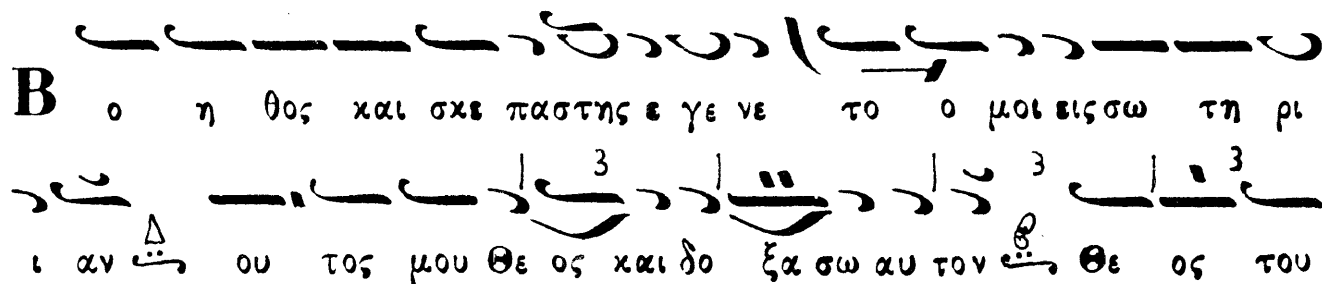 Βο η θος και σκε παστης ε γε νε το ο μοι εις σω τη ρι
ι αν Δ ου τος μου Θε ος και δο ξα σω αυ τον Θε ος του